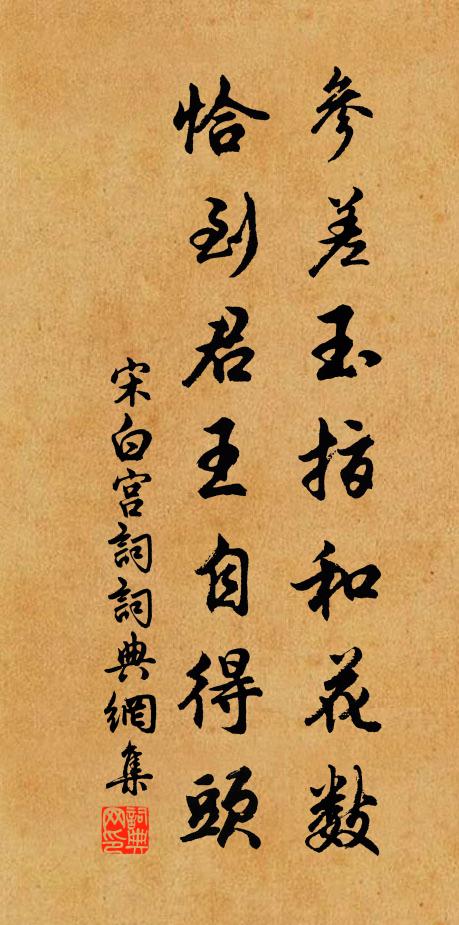 參差玉指和花數
恰到君王自得頭
宋白宮詞詞典網集
詞典网印